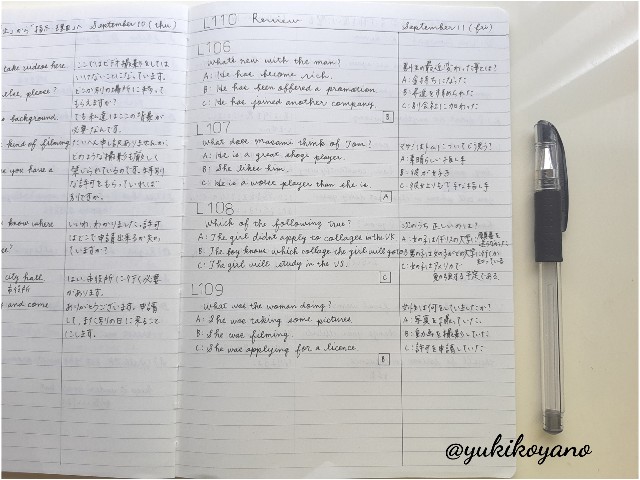 September 10 (thu)
take videos here
ここではビデオ撮影をしては
いけないことになっています。
else, please?
どこか別の場所に移って
もらえますか?
background.
でも私達にはこの背景が
必要なんです。
kind of filming
たいへん申し訳ありませんが、
どのような撮影も厳しく
禁じられているのです。
you have a
許可をもらっていれば
別ですが。
know where
いいわ、わかりました。許可
はどこで申請出来るか知っ
ていますか?
city hall
市役所
はい、市役所に行く必要
があります。
and come
ありがとうございます。申請
して、また別の日に来ること
にします。
L110 Review
September 11 (fri)
L106
What's new with the man?
A: He has become rich.
B: He has been offered a promotion.
C: He has joined another company.
B
男性の最近変わった事とは?
A: 金持ちになった
B: 昇進を求められた
C: 別会社に加わった
L107
What does Masami think of Tom?
A: He is a great shogi player.
B: She likes him.
C: He is a worse player than she is.
A
マサミはトムについてどう思う?
A: 素晴らしい将棋の指し手
B: 彼が好き
C: 彼女よりも下手な指し手
L108
Which of the following true?
A: The girl didn't apply to collages in the UK
B: The boy know which collage the girl will go to
C: The girl will study in the US.
C
次のうち正しいのは?
A: 女の子はイギリスの大学に
C: 女の子はアメリカで
勉強する予定である。
L109
What was the woman doing?
A: She was taking some pictures.
B: She was filming.
C: She was applying for a licence.
B
女性は何をしていましたか?
A: 写真を撮っていた。
B: 動画を撮影していた
C: 許可を申請していた
@yukikoyano